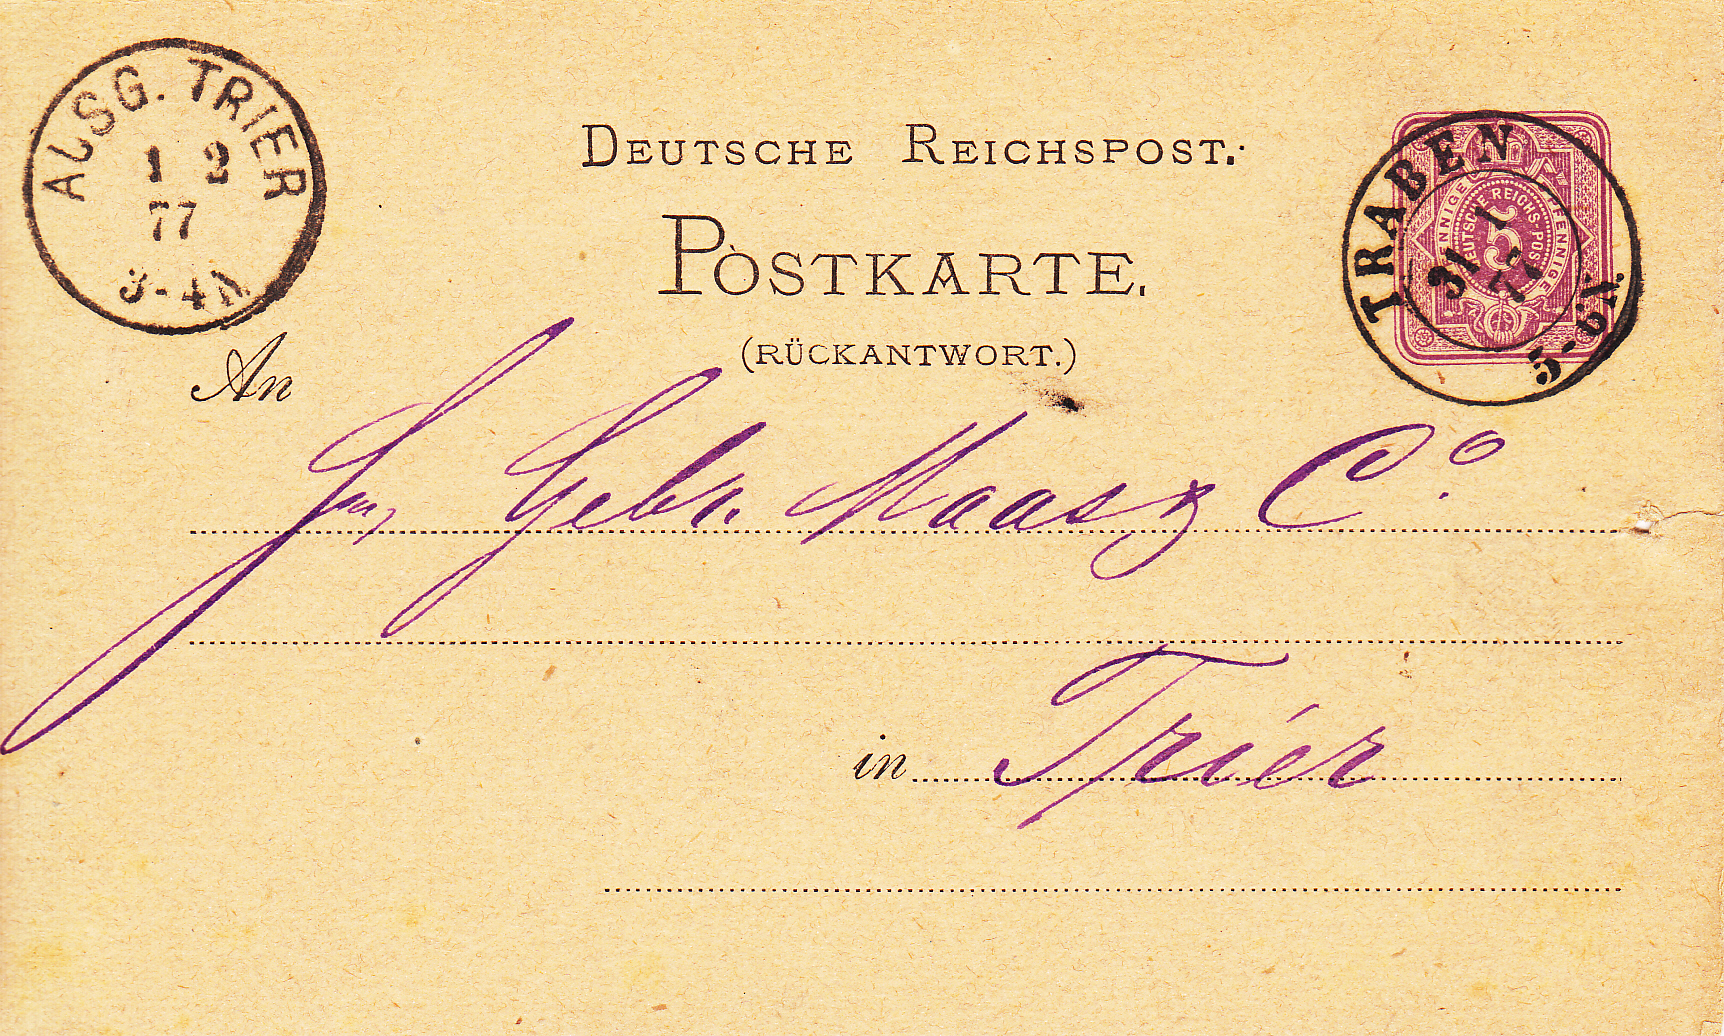 AUSG. TRIER
1 2
77
3-4N
DEUTSCHE REICHSPOST.
POSTKARTE.
(RÜCKANTWORT.)
TRABEN
31 1
77
5-6N.
PFENNIGE
DEUTSCHE REICHS-POST
5
PFENNIGE
An
Gebr. Maas & Co
in Trier